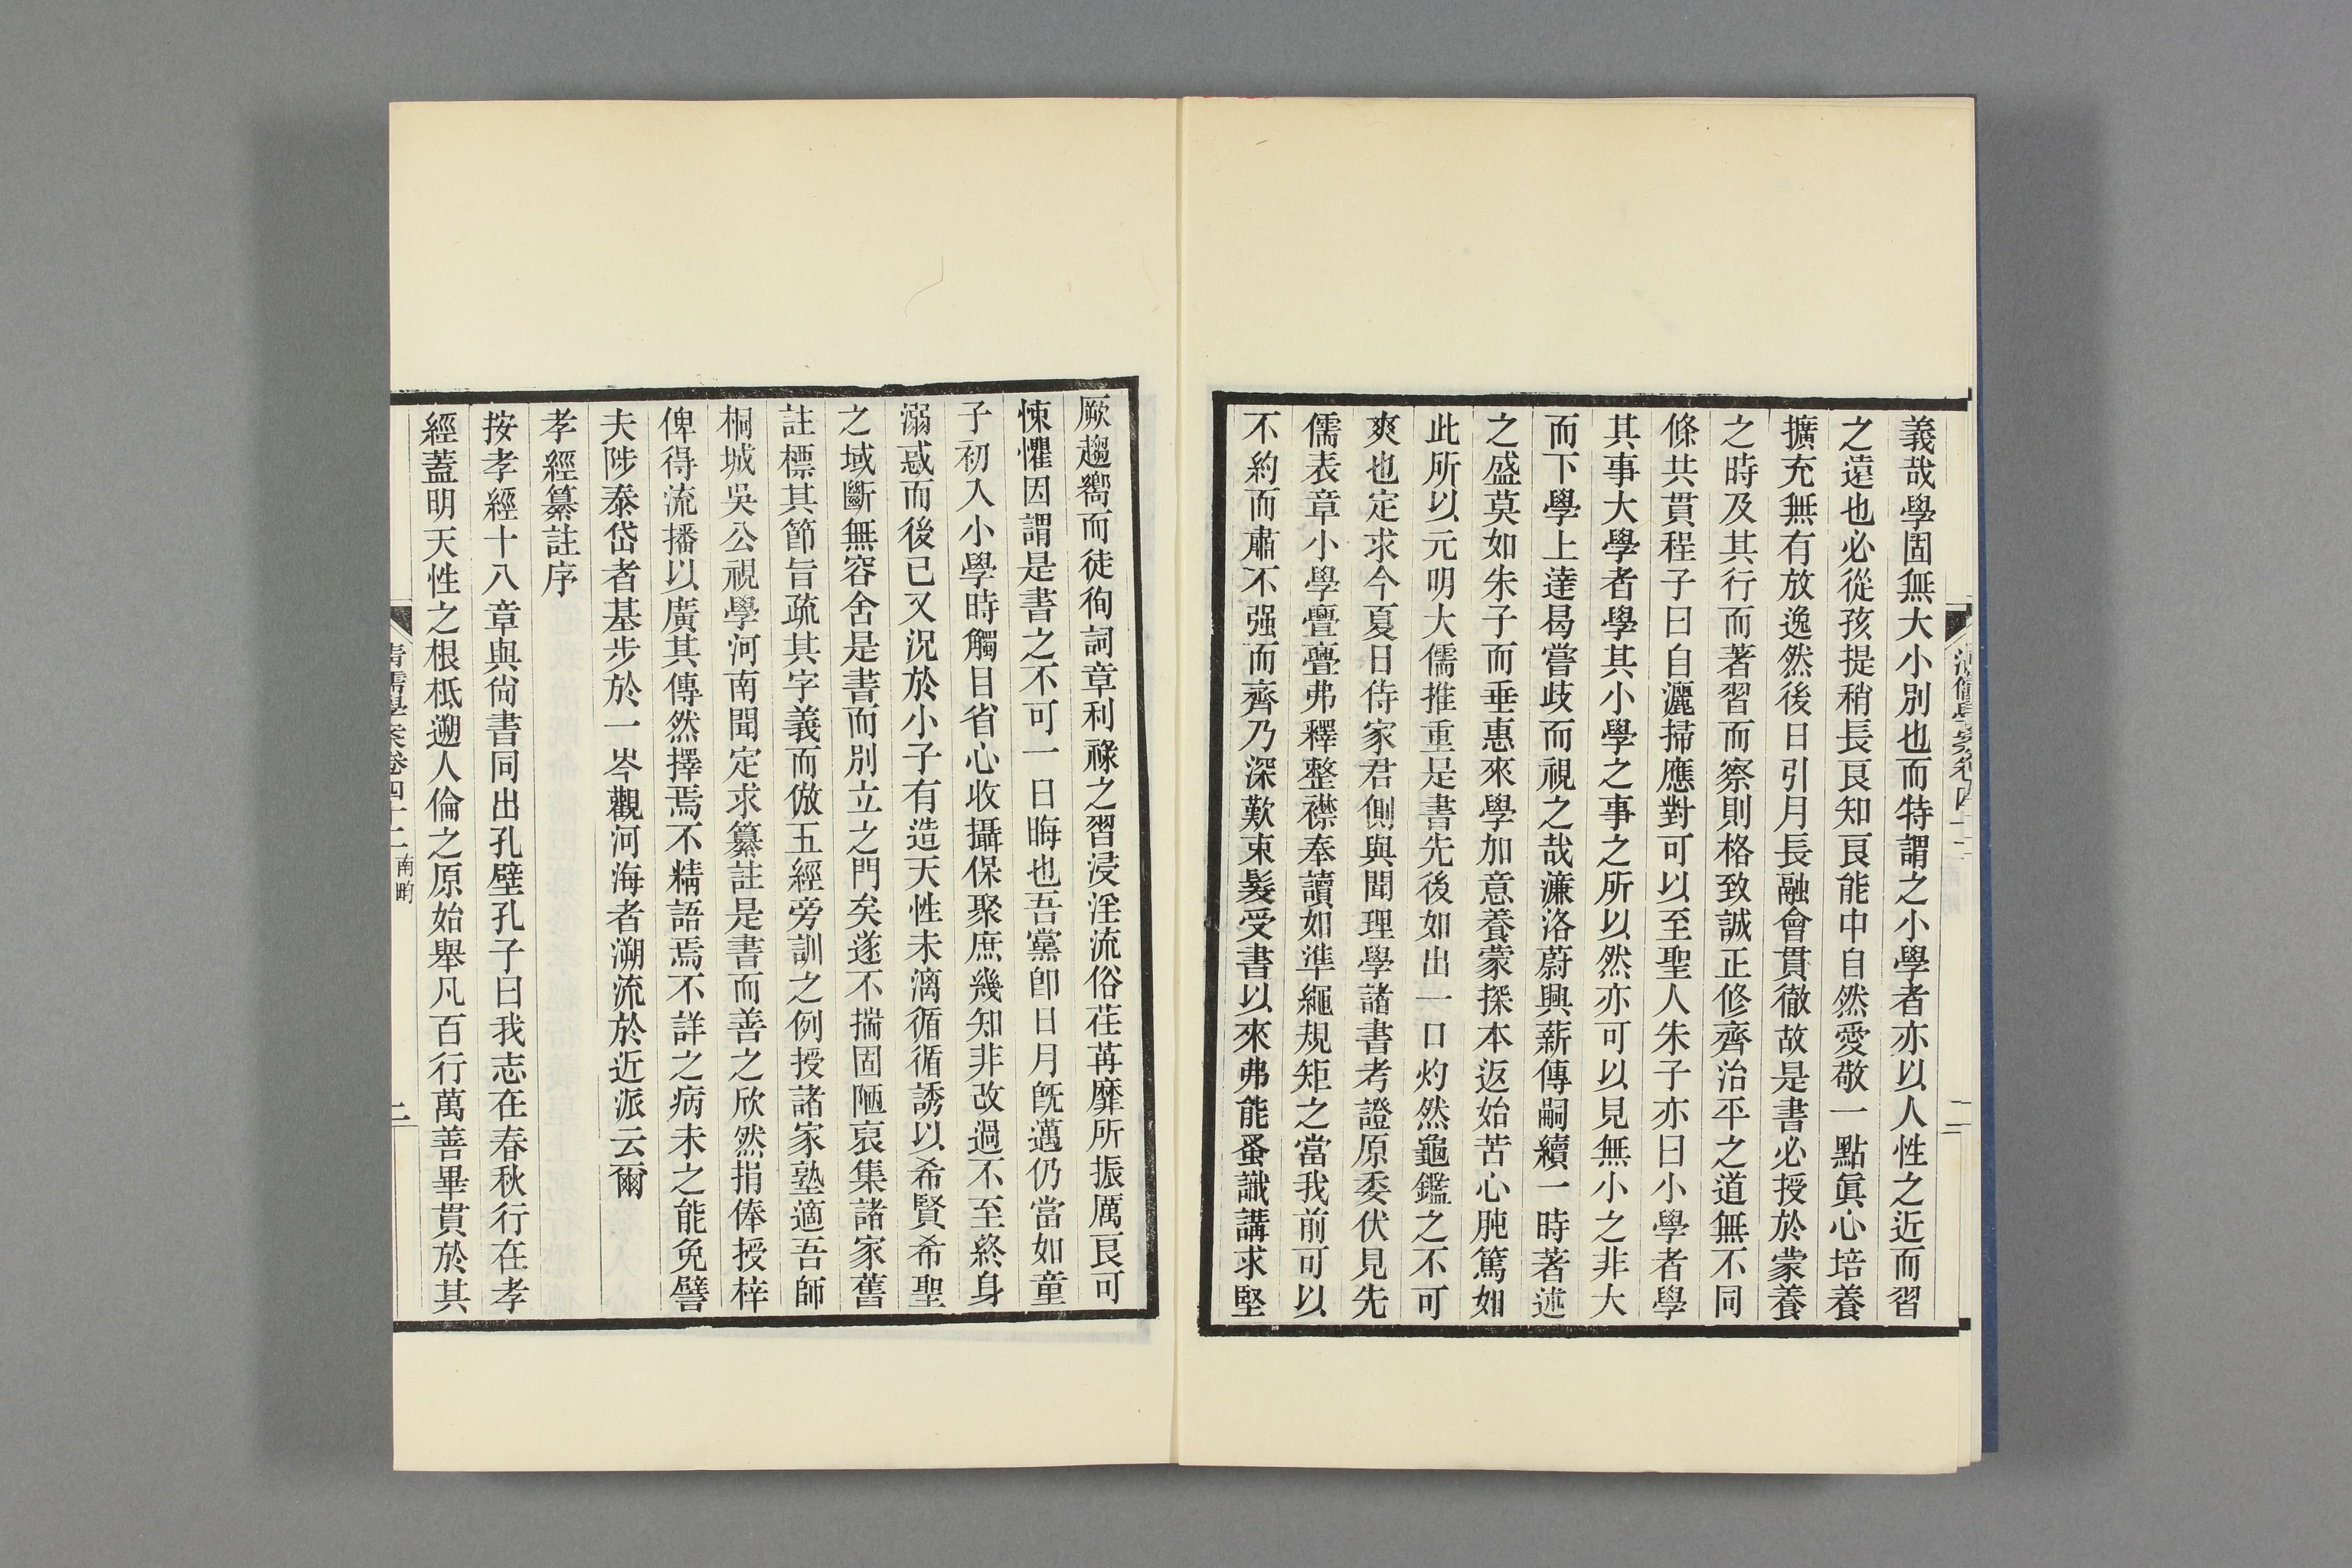 義哉學固無大小別也而特謂之小學者亦以人性之近而習
之遠也必從孩提稍長良知良能中自然愛敬一點眞心培養
擴充無有放逸然後日引月長融會貫徹故是書必授於蒙養
之時及其行而著習而察則格致誠正修齊治平之道無不同
條共貫程子曰自灑掃應對可以至聖人朱子亦曰小學者學
其事大學者學其小學之事之所以然亦可以見無小之非大
而下學上達曷嘗歧而視之哉濂洛蔚興薪傳嗣續一時著述
之盛莫如朱子而垂惠來學加意養蒙探本返始苦心肫篤如
此所以元明大儒推重是書先後如出一口灼然龜鑑之不可
爽也定求今夏日侍家君側與聞理學諸書考證原委伏見先
儒表章小學亹亹弗釋整襟奉讀如準繩規矩之當我前可以
不約而肅不强而齊乃深歎束髮受書以來弗能蚤識講求堅
厥趨嚮而徒徇詞章利祿之習浸淫流俗荏苒靡所振厲良可
悚懼因謂是書之不可一日晦也吾黨卽日月旣邁仍當如童
子初入小學時觸目省心收攝保聚庶幾知非改過不至終身
溺惑而後已又況於小子有造天性未漓循循誘以希賢希聖
之域斷無容舍是書而別立之門矣遂不揣固陋裒集諸家舊
註標其節旨疏其字義而倣五經旁訓之例授諸家塾適吾師
桐城吳公視學河南聞定求纂註是書而善之欣然捐俸授梓
俾得流播以廣其傳然擇焉不精語焉不詳之病未之能免譬
夫陟泰岱者基步於一岑觀河海者溯流於近派云爾
孝經纂註序
按孝經十八章與尙書同出孔壁孔子曰我志在春秋行在孝
經蓋明天性之根柢遡人倫之原始舉凡百行萬善畢貫於其
清儒學案卷四十二 南畇
二